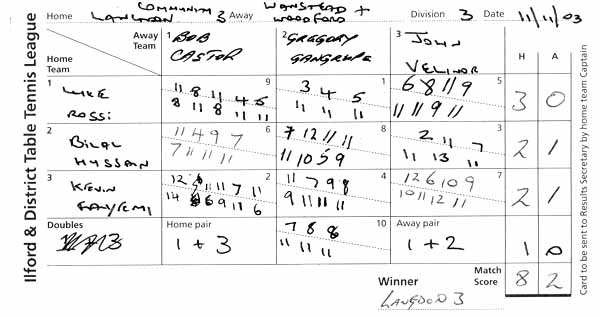 Ilford & District Table Tennis League
Home LANGDON COMMUNITY 3 Away WANSTEAD + WOODFORD Division 3 Date 11/11/03
Away Team
Home Team
1 BOB CASTOR
2 GREGORY
3 JOHN VELINOR
H A
1 LUKE ROSSI
9
11 8 11 4 5
8 11 8 11 11
3 4 5
11 11 11
5
6 8 11 9
11 11 9 11
3 0
2 BILAL HUSSAIN
6
11 4 9 7
7 11 11 11
8
7 12 11 11
11 10 5 9
3
2 11 7
11 13 11
2 1
3 KEVIN
2
11 7 11
14 6 9 11 6
4
11 7 9 8
9 11 11 11
7
12 6 10 9
10 11 12 11
2 1
Doubles
Home pair
1 + 3
10
7 8 8
11 11 11
Away pair
1 + 2
1 0
Winner
LANGDON 3
Match Score
8 2
Card to be sent to Results Secretary by home team Captain